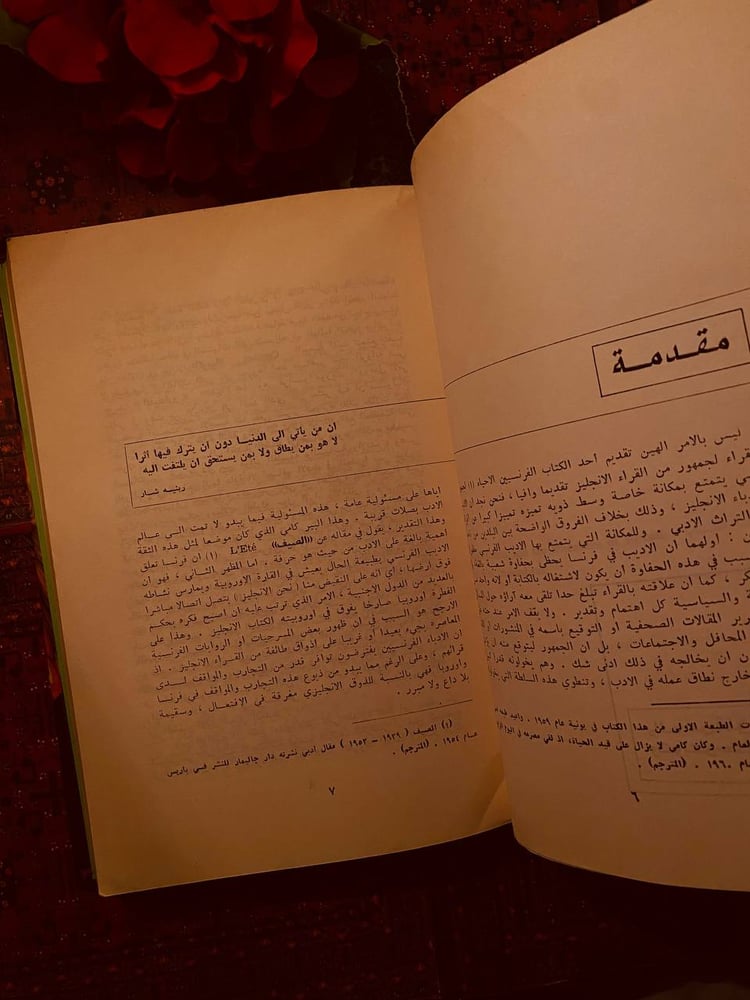 مقدمة
ليس بالامر الهين تقديم أحد الكتاب الفرنسيين الاحياء (١)
لجمهور من القراء الانجليز تقديما وافيا ، فنحن نجد ان
يتمتع بمكانة خاصة وسط ذويه تميزه تمييزا كبيرا عن
الانجليز ، وذلك بخلاف الفروق الواضحة بين البلدين
التراث الادبي . وللمكانة التي يتمتع بها الاديب الفرنسي
: اولهما ان الاديب في فرنسا يحظى بحفاوة شعبية
في هذه الحفاوة ان يكون لاشتغاله بالكتابة او لانه
، كما ان علاقته بالقراء تبلغ حدا تلقى معه آراؤه حول
والسياسية كل اهتمام وتقدير . ولا يقف الامر عند
المقالات الصحفية او التوقيع باسمه في المنشورات
المحافل والاجتماعات ، بل ان الجمهور ليتوقع منه
ان يخالجه في ذلك ادنى شك . وهم يخولونه
خارج نطاق عمله في الادب ، وتنطوي هذه السلطة التي
الطبعة الاولى من هذا الكتاب في يونية عام ١٩٥٩ .
. وكان كامي لا يزال على قيد الحياة، اذ لقي مصرعه في
١٩٦٠ . (المترجم) .
٦
ان من يأتي الى الدنيا دون أن يترك فيها أثرا
لا هو بمن يطاق ولا بمن يستحق ان يلتفت اليه
رينيه شار
اياها على مسئولية عامة ، هذه المسئولية فيما يبدو لا تمت الى عالم
الادب بصلات قريبة . وهذا البير كامي الذي كان موضعا لمثل هذه الثقة
وهذا التقدير ، يقول في مقاله عن «الصيف» L'Eté (١) ان فرنسا تعلق
اهمية بالغة على الادب من حيث هو حرفة . اما المظهر الثاني ، فهو ان
الاديب الفرنسي بطبيعة الحال يعيش في القارة الاوروبية ويمارس نشاطه
فوق ارضها ، اي انه على النقيض منا (نحن الانجليز) يتصل اتصالا مباشرا
بالعديد من الدول الاجنبية ، الامر الذي ترتب عليه ان اصبح فكره بحكم
الفطرة اوروبيا صارخا يفوق في اوروبيته الكتاب الانجليز . وهذا على
الارجح هو السبب في ان ظهور بعض المسرحيات او الروايات الفرنسية
المعاصرة يجيء بعيدا او غريبا على اذواق طائفة من القراء الانجليز . اذ
ان الادباء الفرنسيين يفترضون توافر قدر من التجارب والمواقف لدى
قرائهم ، وعلى الرغم مما يبدو من ذيوع هذه التجارب والمواقف في فرنسا
واوروبا فهي بالنسبة للذوق الانجليزي مغرقة في الافتعال ، وسقيمة
بلا داع ولا مبرر .
(١) الصيف ( ١٩٣٩ – ١٩٥٣ ) مقال ادبي نشرته دار جاليمار للنشر في باريس
عام ١٩٥٤ . (المترجم) .
٧